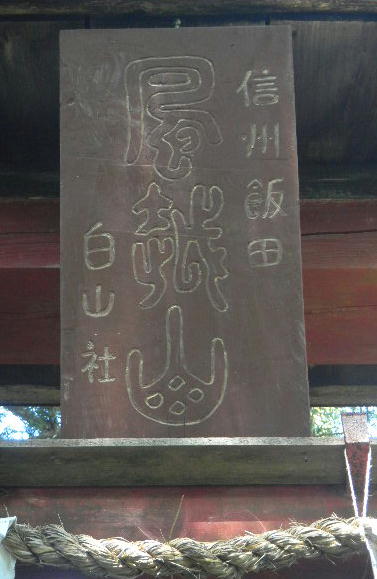 信州飯田
風越山
白山社